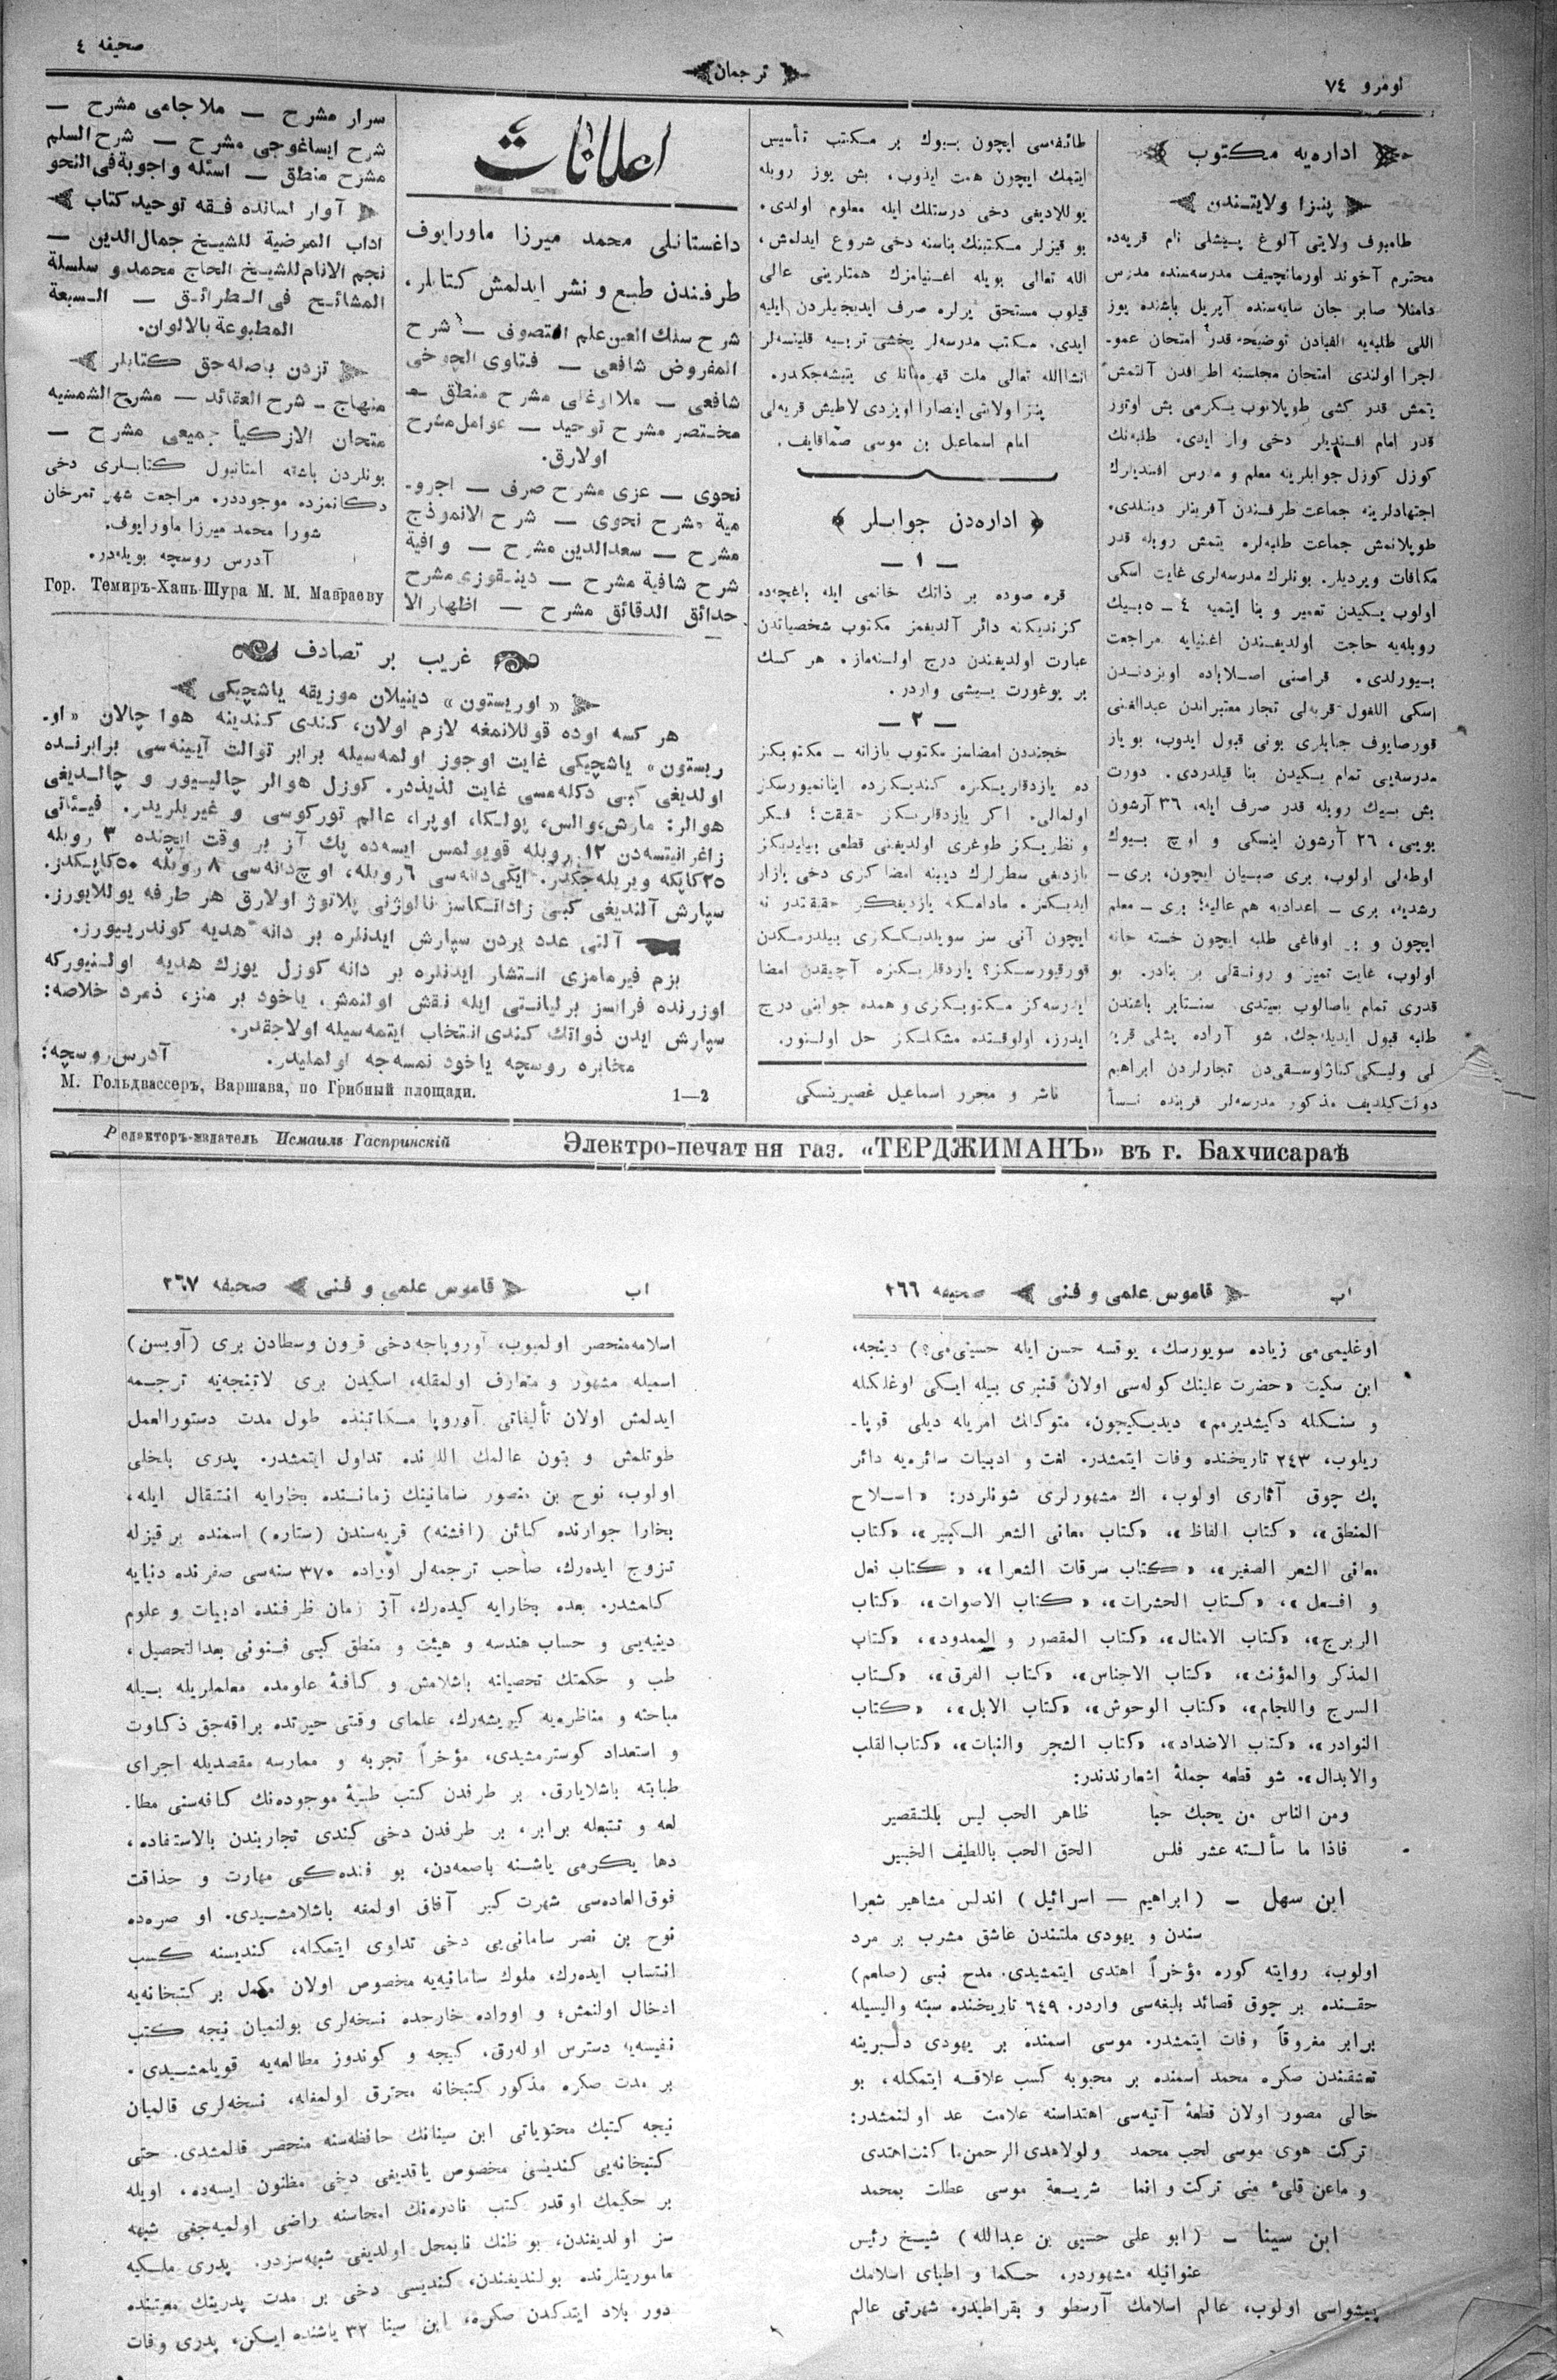 نومرو ٧٤
ترجمان
صحیفه ٤
اداره‌یه مكتوب
پنزا ولایتندن
طامبوف ولایتی آلوغ پیشلی نام قریه‌ده
محترم آخوند اورمانچییف مدرسه‌سنده مدرس
داملا صابر جان سایه‌سنده آپریل باشنده یوز
اللی طلبه‌یه الفبادن توضیحه قدر امتحان عمو-
اجرا اولندی امتحان مجلسنه اطرافدن آلتمش
یتمش قدر كشی طوپلانوب یكرمی بش اوتوز
قدر امام افندیلر دخی وار ایدی. طلبه‌نك
كوزل كوزل جوابلرینه معلم و مدرس افندیلرك
اجتهادلرینه جماعت طرفندن آفرینلر دینلدی.
طوپلانمش جماعت طلبه‌لره یتمش روبله قدر
مكافات ویردیلر. بونلرك مدرسه‌لری غایت اسكی
اولوب یكیدن تعمیر و بنا ایتمیه ٤ - ٥ بیك
روبله‌یه حاجت اولدیغندن اغنیایه مراجعت
بیورلدی.
اسكی اللغول قریه‌لی تجار معتبراندن عبدالغنی
قورصایوف جنابلری بونی قبول ایدوب، بو یاز
مدرسه‌یی تمام یكیدن بنا قیلدردی. دورت
بش بیك روبله قدر صرف ایله، ٣٦ آرشون
بویی، ٢٦ آرشون اینسكی و اوچ بیوك
اوطه‌لی اولوب، بری صبیان ایچون، بری -
رشدیه، بری - اعدادیه هم عالیه؛ بری - معلم
ایچون و بر اوفاغی طلبه ایچون خسته خانه
اولوب، غایت تمیز و رونقلی بر بنادر. بو
قدری تمام یاصالوب بیتدی. سنتابر باشندن
طلبه قبول ایدیله‌جك. شو آراده پشلی قریه
لی ولیكی كناژاوسقی‌دن تجارلردن ابراهیم
دولت كیلدیف مذكور مدرسه‌لر قربنده نسأ
طائفه‌سی ایچون بیوك بر مكتب تأسیس
ایتمك ایچون همت ایدوب، بش یوز روبله
یوللادیغی دخی درستلك ایله معلوم اولدی.
بو قیزلر مكتبنك بناسنه دخی شروع ایدلمش،
الله تعالی بویله اغنیامزك همتلرینی عالی
قیلوب مستحق یرلره صرف ایدیجیلردن ایلیه
ایدی. مكتب مدرسه‌لر یخشی تربیه قلینسه‌لر
انشاالله تعالی ملت قهرمانلری یتیشه‌جكدر.
پنزا ولایتی اینصارا اویزدی لاطیش قریه‌لی
امام اسماعیل بن موسی صفاقایف.
اداره‌دن جوابلر
- ١ -
قره صوده بر ذاتك خانمی ایله باغچه‌ده
كزندیكنه دائر آلدیغمز مكتوب شخصیاتدن
عبارت اولدیغندن درج اولنه‌ماز. هر كسك
بر یوغورت یییشی واردر.
- ٢ -
خجنددن امضاسز مكتوب یازانه - مكتوبكز
ده یازدقلریكزه كندیكزده اینانمیورسكز
اولمالی. اكر یازدقلریكز حقیقت؛ فكر
و نظریكز طوغری اولدیغنی قطعی بیلیدیكز
یازدیغی سطرلرك دیبنه امضاكزی دخی یازار
ایدیكز. مادامكه یازدیغكز حقیقتدر نه
ایچون آنی سز سویلدیككزی بیلدرمكدن
قورقیورسكز؟ یازدقلریكزه آچیقدن امضا
ایدرسه‌كز مكتوبكزی و همده جوابنی درج
ایدرز، اولوقتده مشكلكز حل اولنور.
ناشر و محرر اسماعیل غصپرینسكی
اعلانات
داغستانلی محمد میرزا ماورایوف
طرفندن طبع و نشر ایدلمش كتابلر،
شرح سلك العین علم التصوف - شرح
المفروض شافعی - فتاوی الچوخی
شافعی - ملا اوغلی مشرح منطق -
مختصر مشرح توحید - عوامل مشرح
اولارق.
نحوی - عزی مشرح صرف - اجرو-
میة مشرح نحوی - شرح الانموذج
مشرح - سعدالدین مشرح - وافیة
شرح شافیة مشرح - دینقوزی مشرح
حدائق الدقائق مشرح - اظهار الا
سرار مشرح - ملا جامی مشرح -
شرح ایساغوجی مشرح - شرح السلم
مشرح منطق - اسئله و اجوبة فی النحو
آوار لسانده فقه توحید كتاب
اداب المرضیة للشیخ جمال‌الدین -
نجم الانام للشیخ الحاج محمد و سلسلة
المشائخ فی الطرائق - السبعة
المطبوعة بالالوان.
تزدن باصله‌جق كتابلر
منهاج - شرح العقائد - مشرح الشمسیه
متحان الازكیأ جمیعی مشرح -
بونلردن باشقه استانبول كتابلری دخی
دكانمزده موجوددر. مراجعت شهر تمرخان
شورا محمد میرزا ماورایوف.
آدرس روسچه بویله‌در.
Гор. Темиръ-Ханъ-Шура М. М. Мавраеву
غریب بر تصادف
«اوریستون» دینیلان موزیقه یاشچیكی
هر كسه اوده قوللانمغه لازم اولان، كندی كندینه هوا چالان «او-
ریستون» یاشچیكی غایت اوجوز اولمه‌سیله برابر توالت آیینه‌سی برابرنده
اولدیغی كبی دكله‌مسی غایت لذیذدر. كوزل هوالر چالیسیور و چالدیغی
هوالر: مارش، والس، پولكا، اوپرا، عالم توركوسی و غیریلریدر. فیئاتی
زاغرانیتسه‌دن ١٢ روبله قویولمش ایسه‌ده پك آز بر وقت ایچنده ٣ روبله
٢٥ كاپكه ویریله‌جكدر. ایكی دانه‌سی ٦ روبله، اوچ دانه‌سی ٨ روبله ٥٠ كاپكدر.
سپارش آلندیغی كبی زاداتكاسز نالوژنی پلاتوژ اولارق هر طرفه یوللایورز.
آلتی عدد بردن سپارش ایدنلره بر دانه هدیه كوندرییورز.
بزم فیرمامزی انتشار ایدنلره بر دانه كوزل یوزك هدیه اولنیوركه
اوزرنده فرانسز برلیانتی ایله نقش اولنمش، یاخود بر منز، ذمرد خلاصه:
سپارش ایدن ذواتك كندی انتخاب ایتمه‌سیله اولاجقدر.
مخابره روسچه یاخود نمسه‌جه اولملیدر. آدرس روسچه:
М. Гольдвассеръ, Варшава, по Грибный площади. 1—2
Редакторъ-издатель Исмаилъ Гаспринскій
Электро-печатня газ. «ТЕРДЖИМАНЪ» въ г. Бахчисараѣ
اب
قاموس علمی و فنی
صحیفه ٢٦٦
اوغلیمی‌می زیاده سویورسك، یوقسه حسن ایله حسینی‌می؟) دینجه،
ابن سكیت «حضرت علینك كوله‌سی اولان قنبری بیله ایكی اوغلكله
و سنكله دكیشدیرمم» دیدیكیچون، متوكلك امریله دیلی قوپا-
ریلوب، ٢٤٣ تاریخنده وفات ایتمشدر. لغت و ادبیات سائره‌یه دائر
پك چوق آثاری اولوب، اك مشهورلری شونلردر: «اصلاح
المنطق»، «كتاب الفاظ»، «كتاب معانی الشعر الكبیر»، «كتاب
معانی الشعر الصغیر»، «كتاب سرقات الشعرا»، «كتاب فعل
و افعل»، «كتاب الحشرات»، «كتاب الاصوات»، «كتاب
الربرج»، «كتاب الامثال»، «كتاب المقصور و الممدود»، «كتاب
المذكر والمؤنث»، «كتاب الاجناس»، «كتاب الفرق»، «كتاب
السرج واللجام»، «كتاب الوحوش»، «كتاب الابل»، «كتاب
النوادر»، «كتاب الاضداد»، «كتاب الشجر والنبات»، «كتاب القلب
والابدال». شو قطعه جملهٔ اشعارندندر:
ومن الناس من یحبك حبا ظاهر الحب لیس بالتقصیر
فاذا ما سألته عشر فلس الحق الحب باللطیف الخبیر
ابن سهل - (ابراهیم - اسرائیل) اندلس مشاهیر شعرا
سندن و یهودی ملتندن عاشق مشرب بر مرد
اولوب، روایته كوره مؤخراً اهتدی ایتمشیدی. مدح نبی (صلعم)
حقنده بر چوق قصائد بلیغه‌سی واردر. ٦٤٩ تاریخنده سبته والیسیله
برابر مغروقاً وفات ایتمشدر. موسی اسمنده بر یهودی دلبرینه
تعشقندن صكره محمد اسمنده بر محبوبه كسب علاقه ایتمكله، بو
حالی مصور اولان قطعهٔ آتیه‌سی اهتداسنه علامت عد اولنمشدر:
تركت هوی موسی لحب محمد ولولا هدی الرحمن ما كنت اهتدی
و ماعن قلیٰ منی تركت و انما شریعة موسی عطلت بمحمد
ابن سینا - (ابو علی حسین بن عبدالله) شیخ رئیس
عنوانیله مشهوردر، حكما و اطبای اسلامك
پیشواسی اولوب، عالم اسلامك آرسطو و بقراطیدر. شهرتی عالم
اب
قاموس علمی و فنی
صحیفه ٢٦٧
اسلامه منحصر اولمیوب، آوروپاجه دخی قرون وسطادن بری (آویسن)
اسمیله مشهور و متعارف اولمقله، اسكیدن بری لاتینجه‌یه ترجمه
ایدلمش اولان تألیفاتی آوروپا مكاتبنده طول مدت دستورالعمل
طوتلمش و بتون عالمك اللرنده تداول ایتمشدر. پدری بلخلی
اولوب، نوح بن منصور سامانینك زمانسنده بخارایه انتقال ایله،
بخارا جوارنده كائن (افشنه) قریه‌سندن (ستاره) اسمنده بر قیزله
تزوج ایدەرك، صاحب ترجمه‌لر اوراده ٣٧٠ سنه‌سی صفرنده دنیایه
كلمشدر. بعده بخارایه كیده‌رك، آز زمان ظرفنده ادبیات و علوم
دینیه‌یی و حساب هندسه و هیئت و منطق كبی فنونی بعدالتحصیل،
طب و حكمتك تحصیلنه باشلامش و كافهٔ علومده معلملریله بیله
مباحثه و مناظره‌یه كیریشه‌رك، علمای وقتی حیرتده براقه‌جق ذكاوت
و استعداد كوسترمشیدی. مؤخراً تجربه و ممارسه مقصدیله اجرای
طبابته باشلایارق. بر طرفدن كتب طبیهٔ موجوده‌نك كافه‌سنی مطا-
لعه و تتبعله برابر، بر طرفدن دخی كندی تجاربندن بالاستفاده،
دها یكرمی یاشنه باصمه‌دن، بو فنده‌كی مهارت و حذاقت
فوق‌العاده‌سی شهرت كیر آفاق اولمغه باشلامشیدی. او صره‌ده
نوح بن نصر سامانی‌یی دخی تداوی ایتمكله، كندیسنه كسب
انتساب ایدەرك، ملوك سامانیه‌یه مخصوص اولان مكمل بر كتبخانه‌یه
ادخال اولنمش؛ و اوراده خارجده نسخه‌لری بولنمیان نیجه كتب
نفیسه‌یه دسترس اوله‌رق، كیجه و كوندوز مطالعه‌یه قویلمشیدی.
بر مدت صكره مذكور كتبخانه محترق اولمغله، نسخه‌لری قالمیان
نیجه كتبك محتویاتی ابن سینانك حافظه‌سنه منحصر قالمشدی. حتی
كتبخانه‌یی كندیسی مخصوص یاقدیغی دخی مظنون ایسه‌ده، اویله
بر حكیمك اوقدر كتب نادره‌نك امحاسنه راضی اولمیه‌جغی شبهه
سز اولدیغندن، بو ظنك نابمحل اولدیغی شبهه‌سزدر. پدری ملكیه
ماموریتلرنده بولندیغندن، كندیسی دخی بر مدت پدرینك معیتنده
دور بلاد ایتدكدن صكره، ابن سینا ٣٢ یاشنده ایكن، پدری وفات